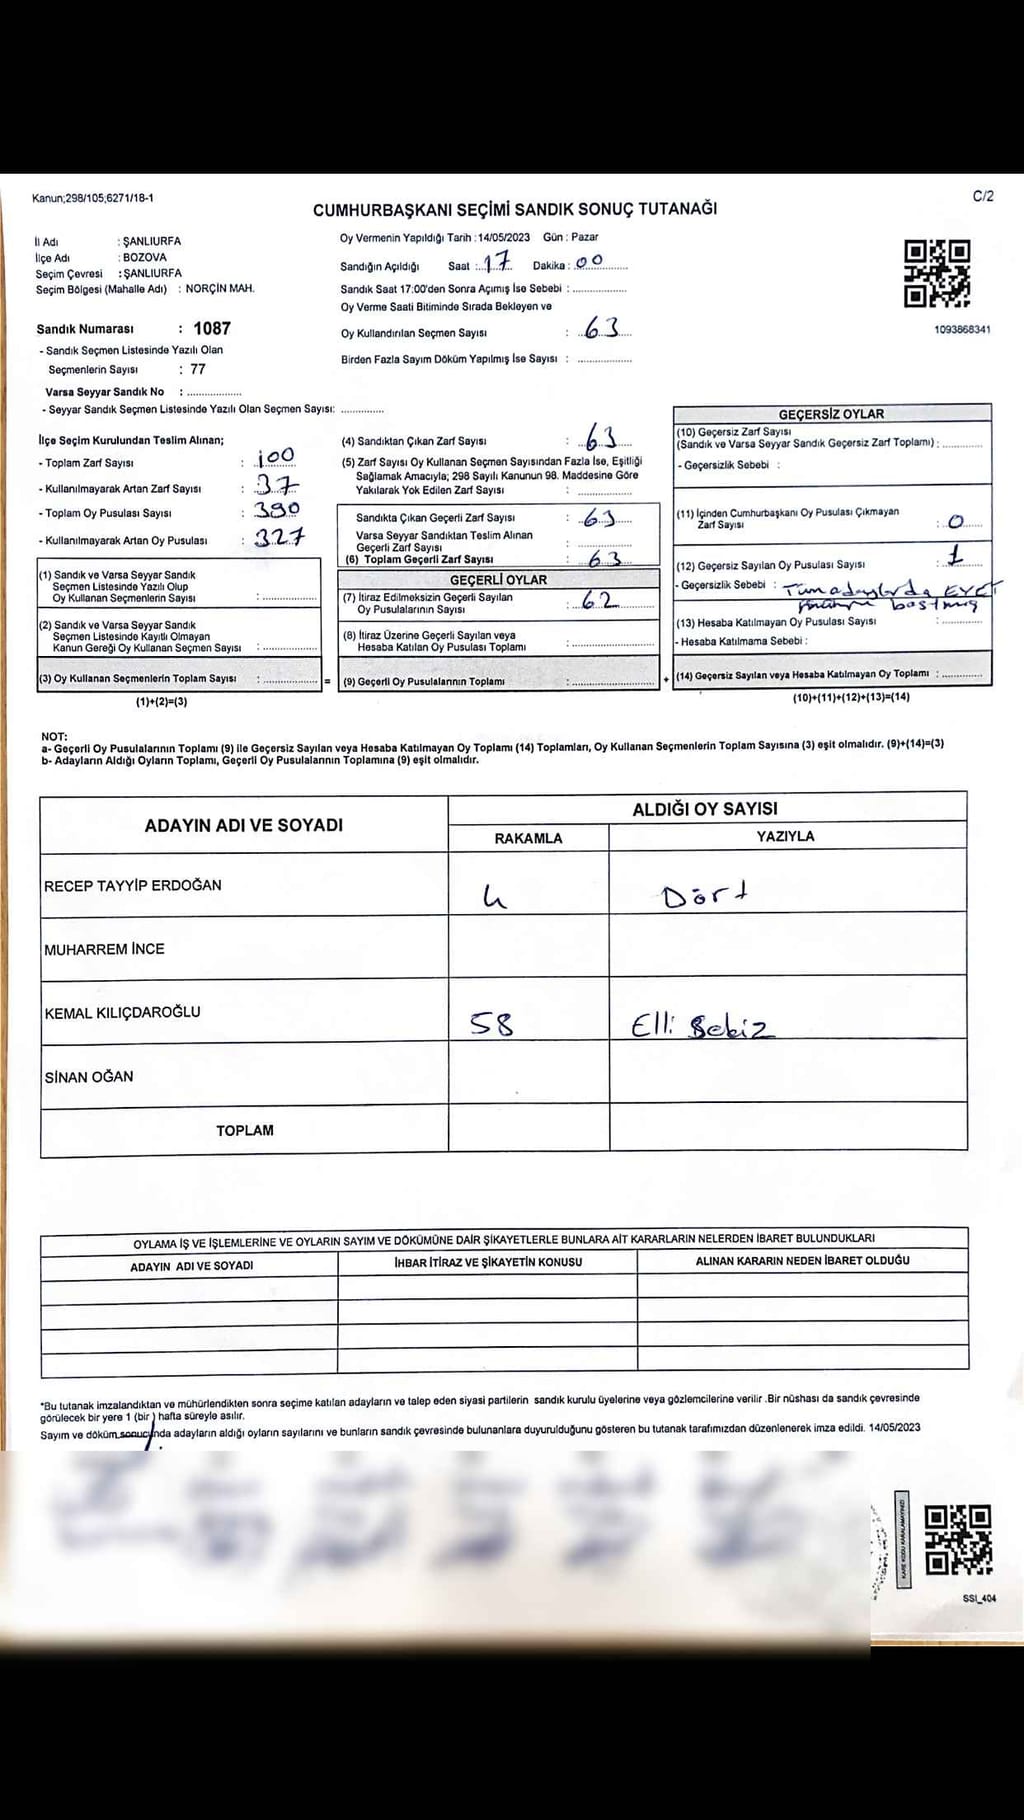 Kanun;298/105;6271/18-1
C/2
CUMHURBAŞKANI SEÇİMİ SANDIK SONUÇ TUTANAĞI
İl Adı : ŞANLIURFA
İlçe Adı : BOZOVA
Seçim Çevresi : ŞANLIURFA
Seçim Bölgesi (Mahalle Adı) : NORÇİN MAH.
Sandık Numarası : 1087
- Sandık Seçmen Listesinde Yazılı Olan
Seçmenlerin Sayısı : 77
Varsa Seyyar Sandık No : ..................
- Seyyar Sandık Seçmen Listesinde Yazılı Olan Seçmen Sayısı: ..............
Oy Vermenin Yapıldığı Tarih :14/05/2023 Gün : Pazar
Sandığın Açıldığı Saat : 17 Dakika : 00
Sandık Saat 17:00'den Sonra Açımış İse Sebebi : ..................
Oy Verme Saati Bitiminde Sırada Bekleyen ve
Oy Kullandırılan Seçmen Sayısı : 63
Birden Fazla Sayım Döküm Yapılmış İse Sayısı : ..................
1093868341
İlçe Seçim Kurulundan Teslim Alınan;
- Toplam Zarf Sayısı : 100
- Kullanılmayarak Artan Zarf Sayısı : 37
- Toplam Oy Pusulası Sayısı : 390
- Kullanılmayarak Artan Oy Pusulası : 327
(1) Sandık ve Varsa Seyyar Sandık
Seçmen Listesinde Yazılı Olup
Oy Kullanan Seçmenlerin Sayısı : ..................
(2) Sandık ve Varsa Seyyar Sandık
Seçmen Listesinde Kayıtlı Olmayan
Kanun Gereği Oy Kullanan Seçmen Sayısı : ..................
(3) Oy Kullanan Seçmenlerin Toplam Sayısı : ..................
(1)+(2)=(3)
(4) Sandıktan Çıkan Zarf Sayısı : 63
(5) Zarf Sayısı Oy Kullanan Seçmen Sayısından Fazla İse, Eşitliği
Sağlamak Amacıyla; 298 Sayılı Kanunun 98. Maddesine Göre
Yakılarak Yok Edilen Zarf Sayısı : ..................
Sandıkta Çıkan Geçerli Zarf Sayısı : 63
Varsa Seyyar Sandıktan Teslim Alınan
Geçerli Zarf Sayısı : ..................
(6) Toplam Geçerli Zarf Sayısı : 63
GEÇERLİ OYLAR
(7) İtiraz Edilmeksizin Geçerli Sayılan
Oy Pusulalarının Sayısı : 62
(8) İtiraz Üzerine Geçerli Sayılan veya
Hesaba Katılan Oy Pusulası Toplamı : ..................
= (9) Geçerli Oy Pusulalarının Toplamı : ..................
GEÇERSİZ OYLAR
(10) Geçersiz Zarf Sayısı
(Sandık ve Varsa Seyyar Sandık Geçersiz Zarf Toplamı) : .............
- Geçersizlik Sebebi :
(11) İçinden Cumhurbaşkanı Oy Pusulası Çıkmayan
Zarf Sayısı : 0
(12) Geçersiz Sayılan Oy Pusulası Sayısı : 1
- Geçersizlik Sebebi : Tüm adaylarda EVET
mührü bastmış
(13) Hesaba Katılmayan Oy Pusulası Sayısı : .............
- Hesaba Katılmama Sebebi :
+ (14) Geçersiz Sayılan veya Hesaba Katılmayan Oy Toplamı : .............
(10)+(11)+(12)+(13)=(14)
NOT:
a- Geçerli Oy Pusulalarının Toplamı (9) ile Geçersiz Sayılan veya Hesaba Katılmayan Oy Toplamı (14) Toplamları, Oy Kullanan Seçmenlerin Toplam Sayısına (3) eşit olmalıdır. (9)+(14)=(3)
b- Adayların Aldığı Oyların Toplamı, Geçerli Oy Pusulalarının Toplamına (9) eşit olmalıdır.
ADAYIN ADI VE SOYADI
ALDIĞI OY SAYISI
RAKAMLA YAZIYLA
RECEP TAYYİP ERDOĞAN 4 Dört
MUHARREM İNCE
KEMAL KILIÇDAROĞLU 58 Elli Sekiz
SİNAN OĞAN
TOPLAM
OYLAMA İŞ VE İŞLEMLERİNE VE OYLARIN SAYIM VE DÖKÜMÜNE DAİR ŞİKAYETLERLE BUNLARA AİT KARARLARIN NELERDEN İBARET BULUNDUKLARI
ADAYIN ADI VE SOYADI İHBAR İTİRAZ VE ŞİKAYETİN KONUSU ALINAN KARARIN NEDEN İBARET OLDUĞU
*Bu tutanak imzalandıktan ve mühürlendikten sonra seçime katılan adayların ve talep eden siyasi partilerin sandık kurulu üyelerine veya gözlemcilerine verilir .Bir nüshası da sandık çevresinde
görülecek bir yere 1 (bir ) hafta süreyle asılır.
Sayım ve döküm sonucunda adayların aldığı oyların sayılarını ve bunların sandık çevresinde bulunanlara duyurulduğunu gösteren bu tutanak tarafımızdan düzenlenerek imza edildi. 14/05/2023
KARE KODU KARALAMAYINIZ!
SSI_404